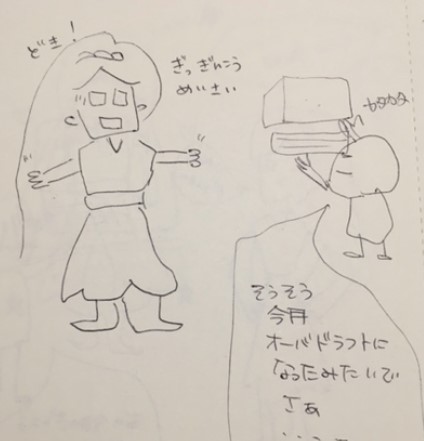 どき!
ぎっ ぎんこう
めいさい
カタカタ
そうそう
今月
オーバドラフトに
なったみたいで
さぁ
......